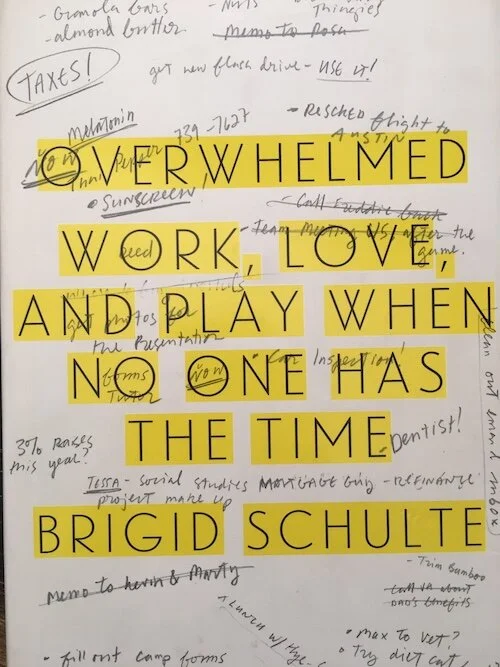 - Granola bars
- almond butter
- Nuts
Thingies
Memo to Rosa
TAXES!
get new flash drive - USE IT!
Melatonin
739-7627
• RESCHED flight to
AUSTIN
NOW
Pepper
OVERWHELMED
• SUNSCREEN!
- Call Freddie back
- Team Meeting W/S, after the
game.
WORK, LOVE,
reed
AND PLAY WHEN
get photos for
the Presentation
clean out email inbox
NO ONE HAS
forms
Tutor
NOW
• Car Inspection!
THE TIME
Dentist!
3% RAISES
this year?
TESSA - social studies
project make up
MORTGAGE Guy - REFINANCE
BRIGID SCHULTE
- Trim Bamboo
Memo to Kevin & Marty
Call VA about
DAD'S benefits
LUNCH w/
• fill out camp forms
• Max to vet?
• Try diet cat